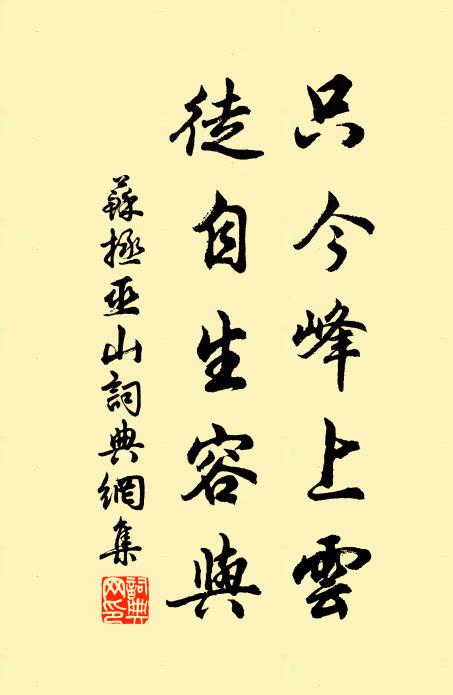 只今峰上雲
徒自生容與
蘇拯巫山詞典網集
詞典網印